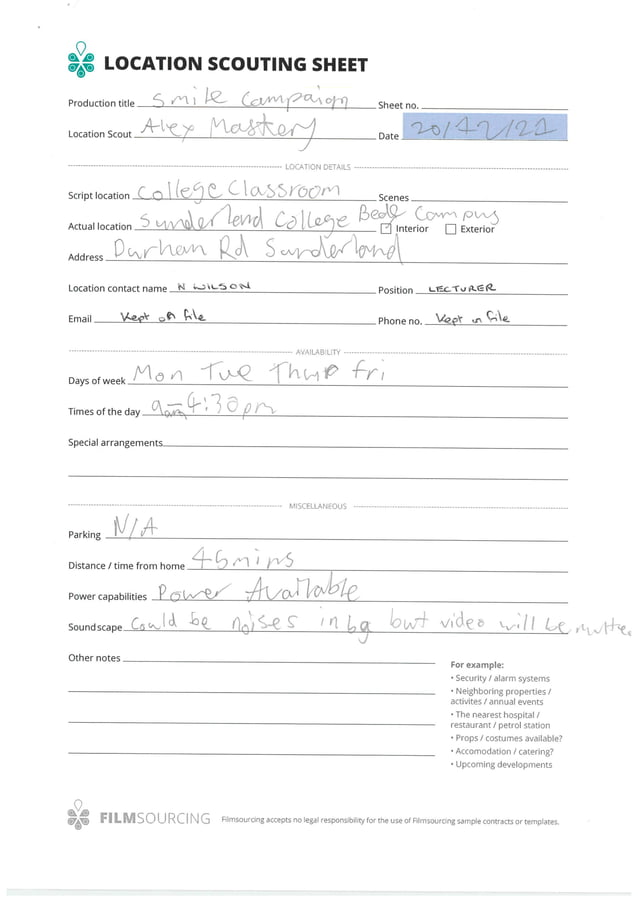 LOCATION SCOUTING SHEET
Production title Smile Campaign Sheet no.
Location Scout Alex Mastery Date 20/12/21
LOCATION DETAILS
Script location College Classroom Scenes
Actual location Sunderland College Bede Campus Interior Exterior
Address Durham Rd Sunderland
Location contact name N WILSON Position LECTURER
Email Kept on file Phone no. Kept in file
AVAILABILITY
Days of week Mon Tue Thur Fri
Times of the day 9am-4:30pm
Special arrangements
MISCELLANEOUS
Parking N/A
Distance / time from home 45mins
Power capabilities Power Available
Soundscape Could be noises in bg but video will be
Other notes
For example:
• Security / alarm systems
• Neighboring properties /
activites / annual events
• The nearest hospital /
restaurant / petrol station
• Props / costumes available?
• Accomodation / catering?
• Upcoming developments
FILMSOURCING Filmsourcing accepts no legal responsibility for the use of Filmsourcing sample contracts or templates.